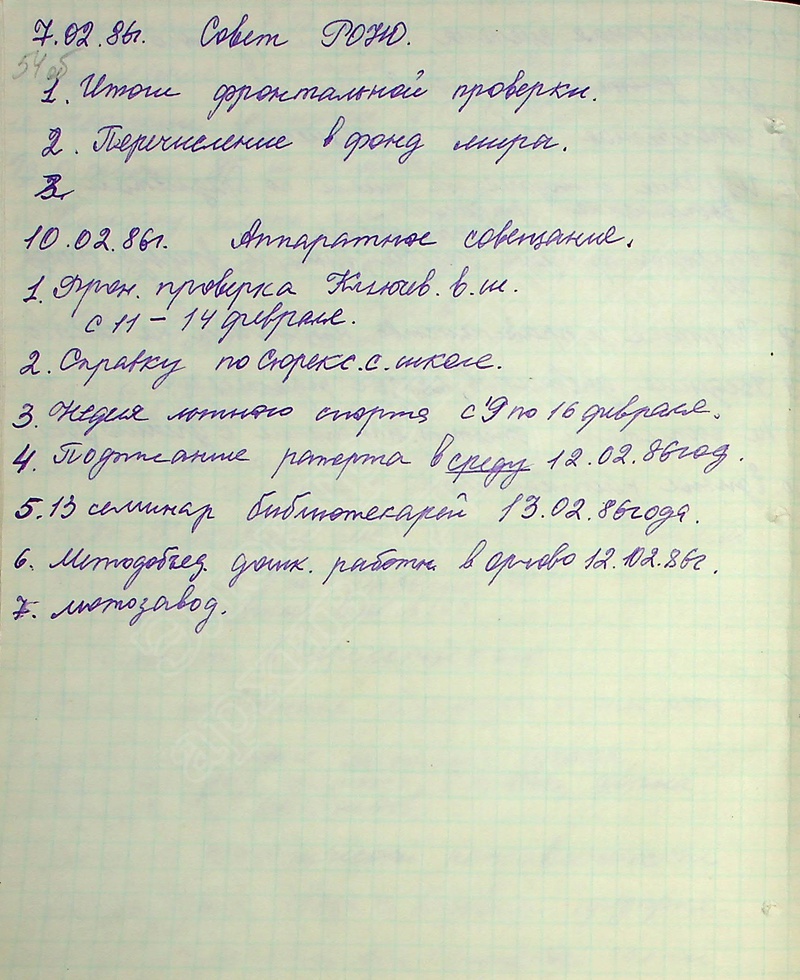 7.02.86г. Совет РОНО.
54об
1. Итоги фронтальной проверки.
2. Перечисление в фонд мира.
3.
10.02.86г. Аппаратное совещание.
1. Фрон. проверка Ключев. в. ш.
с 11 – 14 февраля.
2. Справку по Сюрекс. с. школе.
3. Неделя лыжного спорта с 9 по 16 февраля.
4. Подписание рапорта в среду 12.02.86 год.
5. 13 семинар библиотекарей 13.02.86 года.
6. Методобъед. дошк. работн. в 12.02.86г.
7. мотозавод.